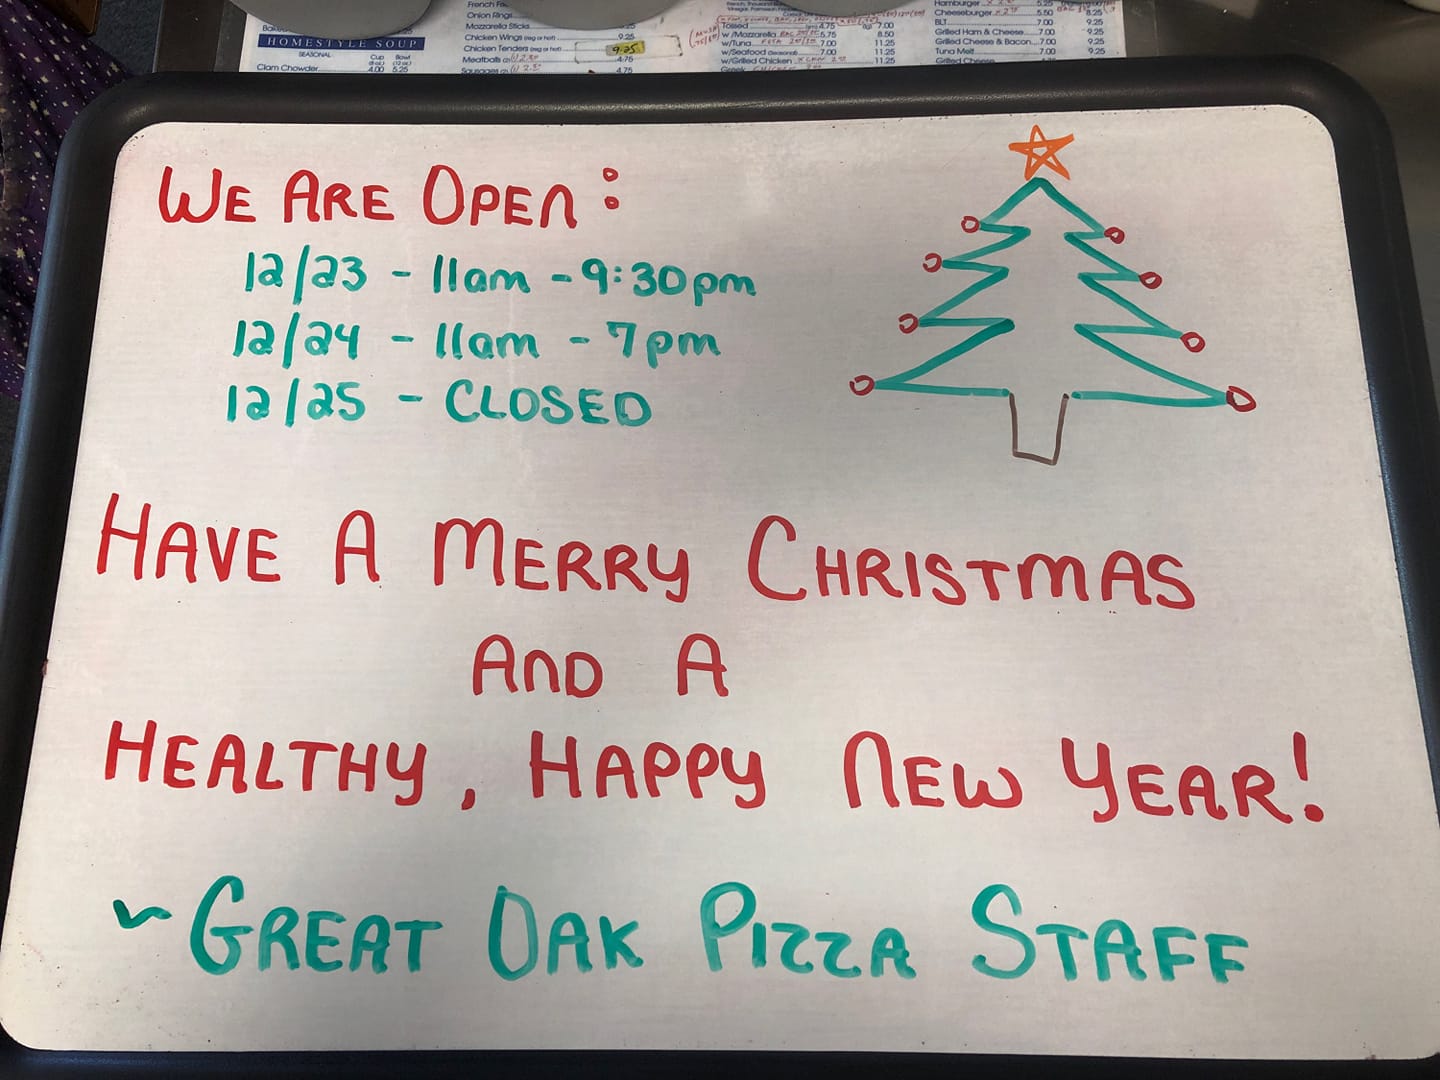 French
Onion Rings
Mozzarella Sticks
Chicken Wings (reg or hot) 9.25
Chicken Tenders (reg or hot) 9.25
Meatballs 4.75
Sausages 4.75
HOMESTYLE SOUP
SEASONAL
Cup Bowl
Clam Chowder 4.00 5.25
Tossed 4.75 7.00
w/Mozzarella 5.75 8.50
w/Tuna 7.00 11.25
w/Seafood (Seasonal) 7.00 11.25
w/Grilled Chicken 11.25
Greek
Hamburger 5.25
Cheeseburger 5.50 8.25
BLT 7.00 9.25
Grilled Ham & Cheese 7.00 9.25
Grilled Cheese & Bacon 7.00 9.25
Tuna Melt 7.00 9.25
Grilled Cheese
WE ARE OPEN:
12/23 - 11am - 9:30pm
12/24 - 11am - 7pm
12/25 - CLOSED
HAVE A MERRY CHRISTMAS
AND A
HEALTHY, HAPPY NEW YEAR!
~ GREAT OAK PIZZA STAFF